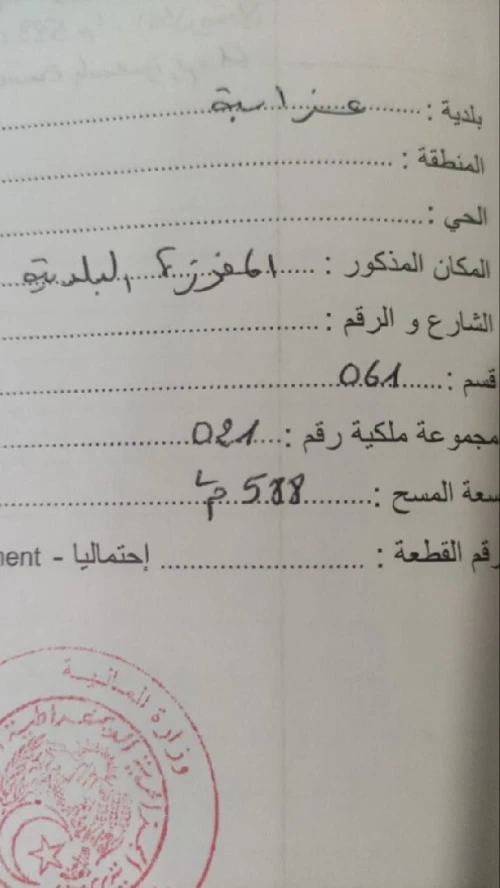 بلدية : عزابة
المنطقة :
الحي :
المكان المذكور : المفرزة البلدية
الشارع و الرقم :
قسم : 061
مجموعة ملكية رقم : 021
سعة المسح : 588 م²
رقم القطعة : إحتماليا - ment
وزارة المالية
الجزائرية الديمقراطية